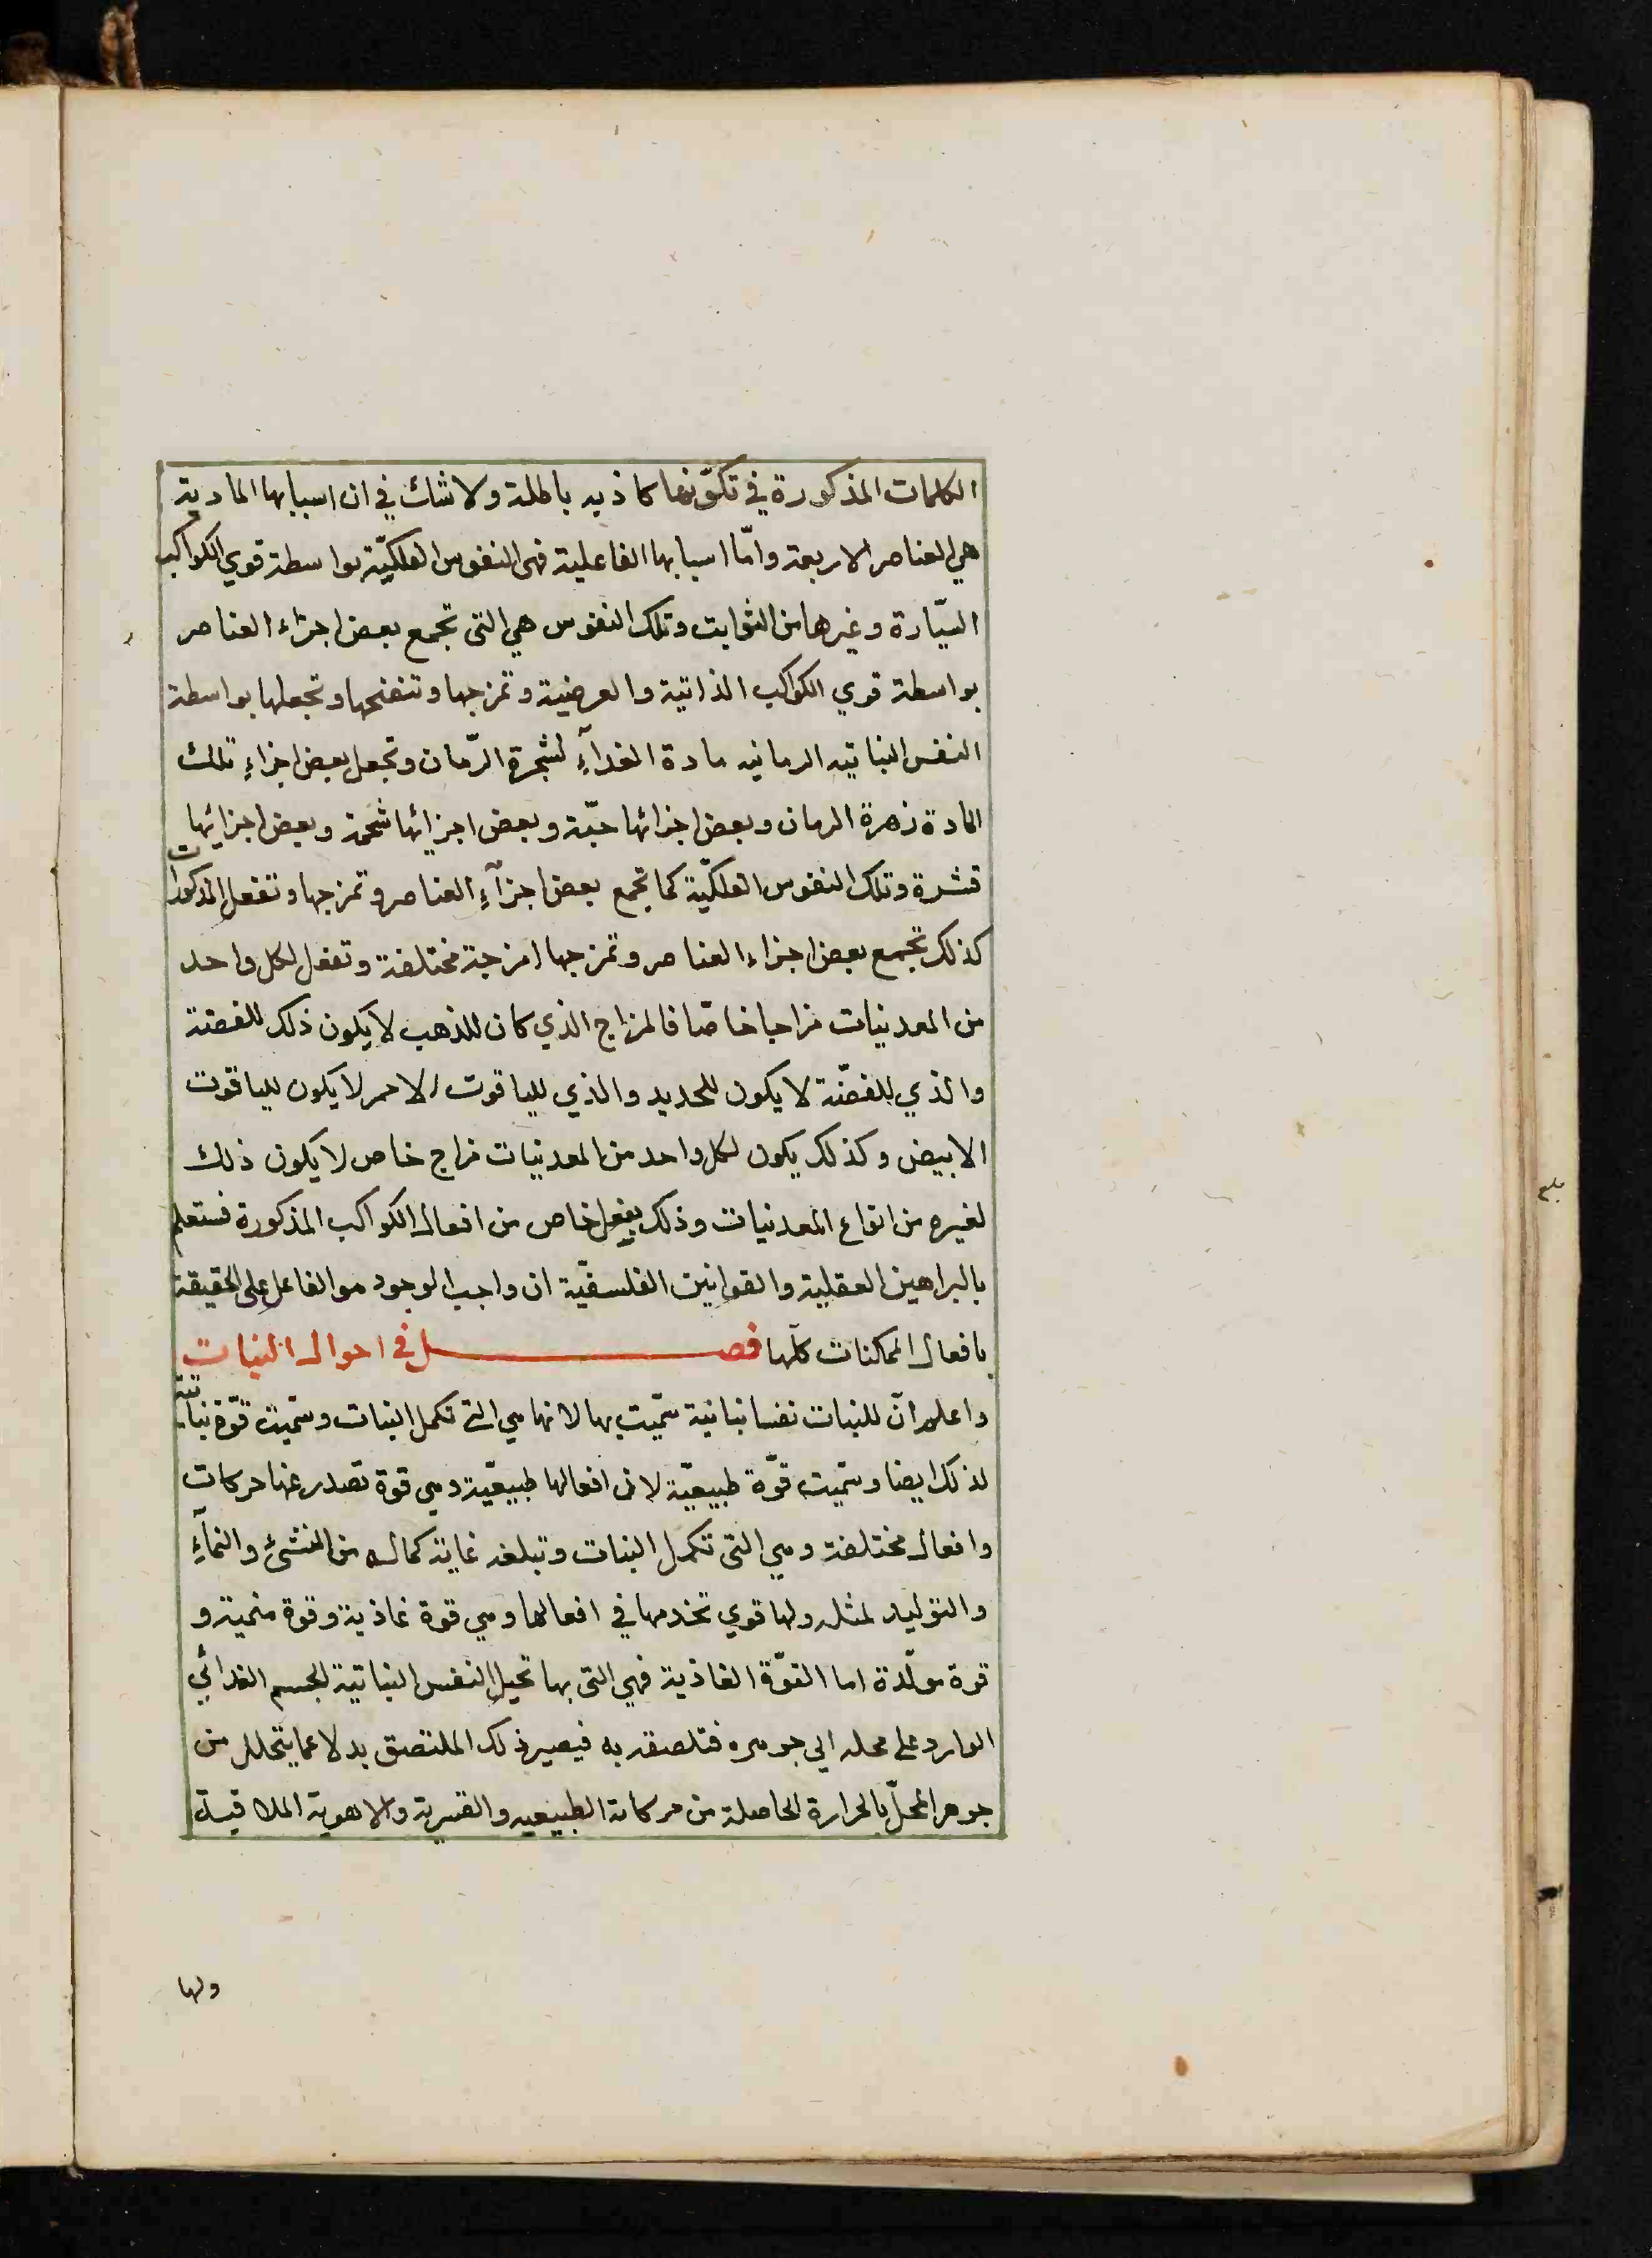 الكلمات المذكورة في تكوّنها كاذبه باطلة ولا شك في ان اسبابها المادية
هي العناصر الاربعة وامّا اسبابها الفاعلية فهى النفوس الفلكيّة بواسطة قوي الكواكب
السيّارة وغيرها من الثوابت وتلك النفوس هي التى تجمع بعض اجزاء العناصر
بواسطة قوي الكواكب الذاتية والعرضية وتمزجها وتنضجها وتجعلها بواسطة
النفس النباتيه الرمانيه مادة الغدآءِ لشجرة الرّمان وتجعل بعض اجزاءِ تلك
المادة زهرة الرمان وبعض اجزائها حبّة وبعض اجزائها شحمة وبعض اجزائها
قشرة وتلك النفوس الفلكيّة كما تجمع بعض اجزآءِ العناصر وتمزجها وتفعل المذكورات
كذلك تجمع بعض اجزاء العناصر وتمزجها امزجة مختلفة وتفعل لكل واحد
من المعدنيات مزاجا خاصّا فالمزاج الذي كان للذهب لا يكون ذلك للفضة
والذي للفضّة لا يكون للحديد والذي للياقوت الاحمر لا يكون للياقوت
الابيض وكذلك يكون لكل واحد من المعدنيات مزاج خاص لا يكون ذلك
لغيره من انواع المعدنيات وذلك بفعل خاص من افعال الكواكب المذكورة فستعلم
بالبراهين العقلية والقوانين الفلسفيّة ان واجب الوجود هو الفاعل على الحقيقة
بافعال الممكنات كلّها فصل في احوال النبات
واعلم انّ للنبات نفسا نباتية سمّيت بها لانها هي التي تكمل النبات وسمّيت قوّة نباتية
لذلك ايضا وسمّيت قوّة طبيعيّة لان افعالها طبيعيّة وهي قوة تصدر عنها حركات
وافعال مختلفة وهي التى تكمل النبات وتبلغه غاية كماله من النشئ والنمآءِ
والتوليد لمثله ولها قوي تخدمها في افعالها وهي قوة غاذية وقوة منمية و
قوة مولّدة اما القوّة الغاذية فهي التى بها تحيل النفس النباتية لجسم الغدائي
الوارد على محله الي جوهره فتلصقه به فيصير ذلك الملتصق بدلا عما يتحلل من
جوهر المحلّ بالحرارة الحاصلة من حركاته الطبيعيه والقسرية والاهوية الملاقية
ولها